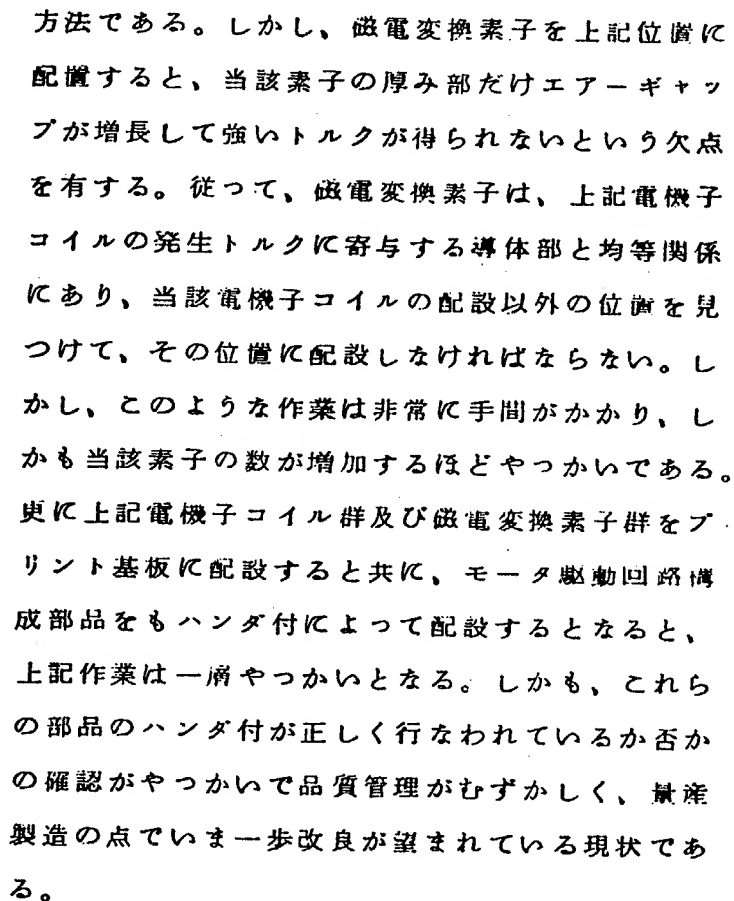 方法である。しかし、磁電変換素子を上記位置に
配置すると、当該素子の厚み部だけエアーギャッ
プが増長して強いトルクが得られないという欠点
を有する。従つて、磁電変換素子は、上記電機子
コイルの発生トルクに寄与する導体部と均等関係
にあり、当該電機子コイルの配設以外の位置を見
つけて、その位置に配設しなければならない。し
かし、このような作業は非常に手間がかかり、し
かも当該素子の数が増加するほどやつかいである。
更に上記電機子コイル群及び磁電変換素子群をプ
リント基板に配設すると共に、モータ駆動回路構
成部品をもハンダ付によって配設するとなると、
上記作業は一層やつかいとなる。しかも、これら
の部品のハンダ付が正しく行なわれているか否か
の確認がやつかいで品質管理がむずかしく、量産
製造の点でいま一歩改良が望まれている現状であ
る。